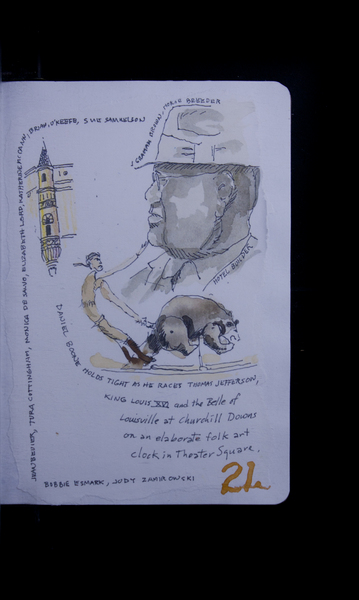 JOAN BRUIER, TORA COTTINGHAM, MONICA DE SALVO, ELIZABETH LORD, KATHERINE McCANN, BRIAN O'KEEFE, SUE SAMUELSON
GRAHAM BROWN, HORSE BREEDER
HOTEL BUILDER
DANIEL BOONE HOLDS TIGHT AS HE RACES THOMAS JEFFERSON,
KING LOUIS XVI and the Belle of
Louisville at Churchill Downs
on an elaborate folk art
clock in Theater Square.
BOBBIE ESMARK, JUDY
21